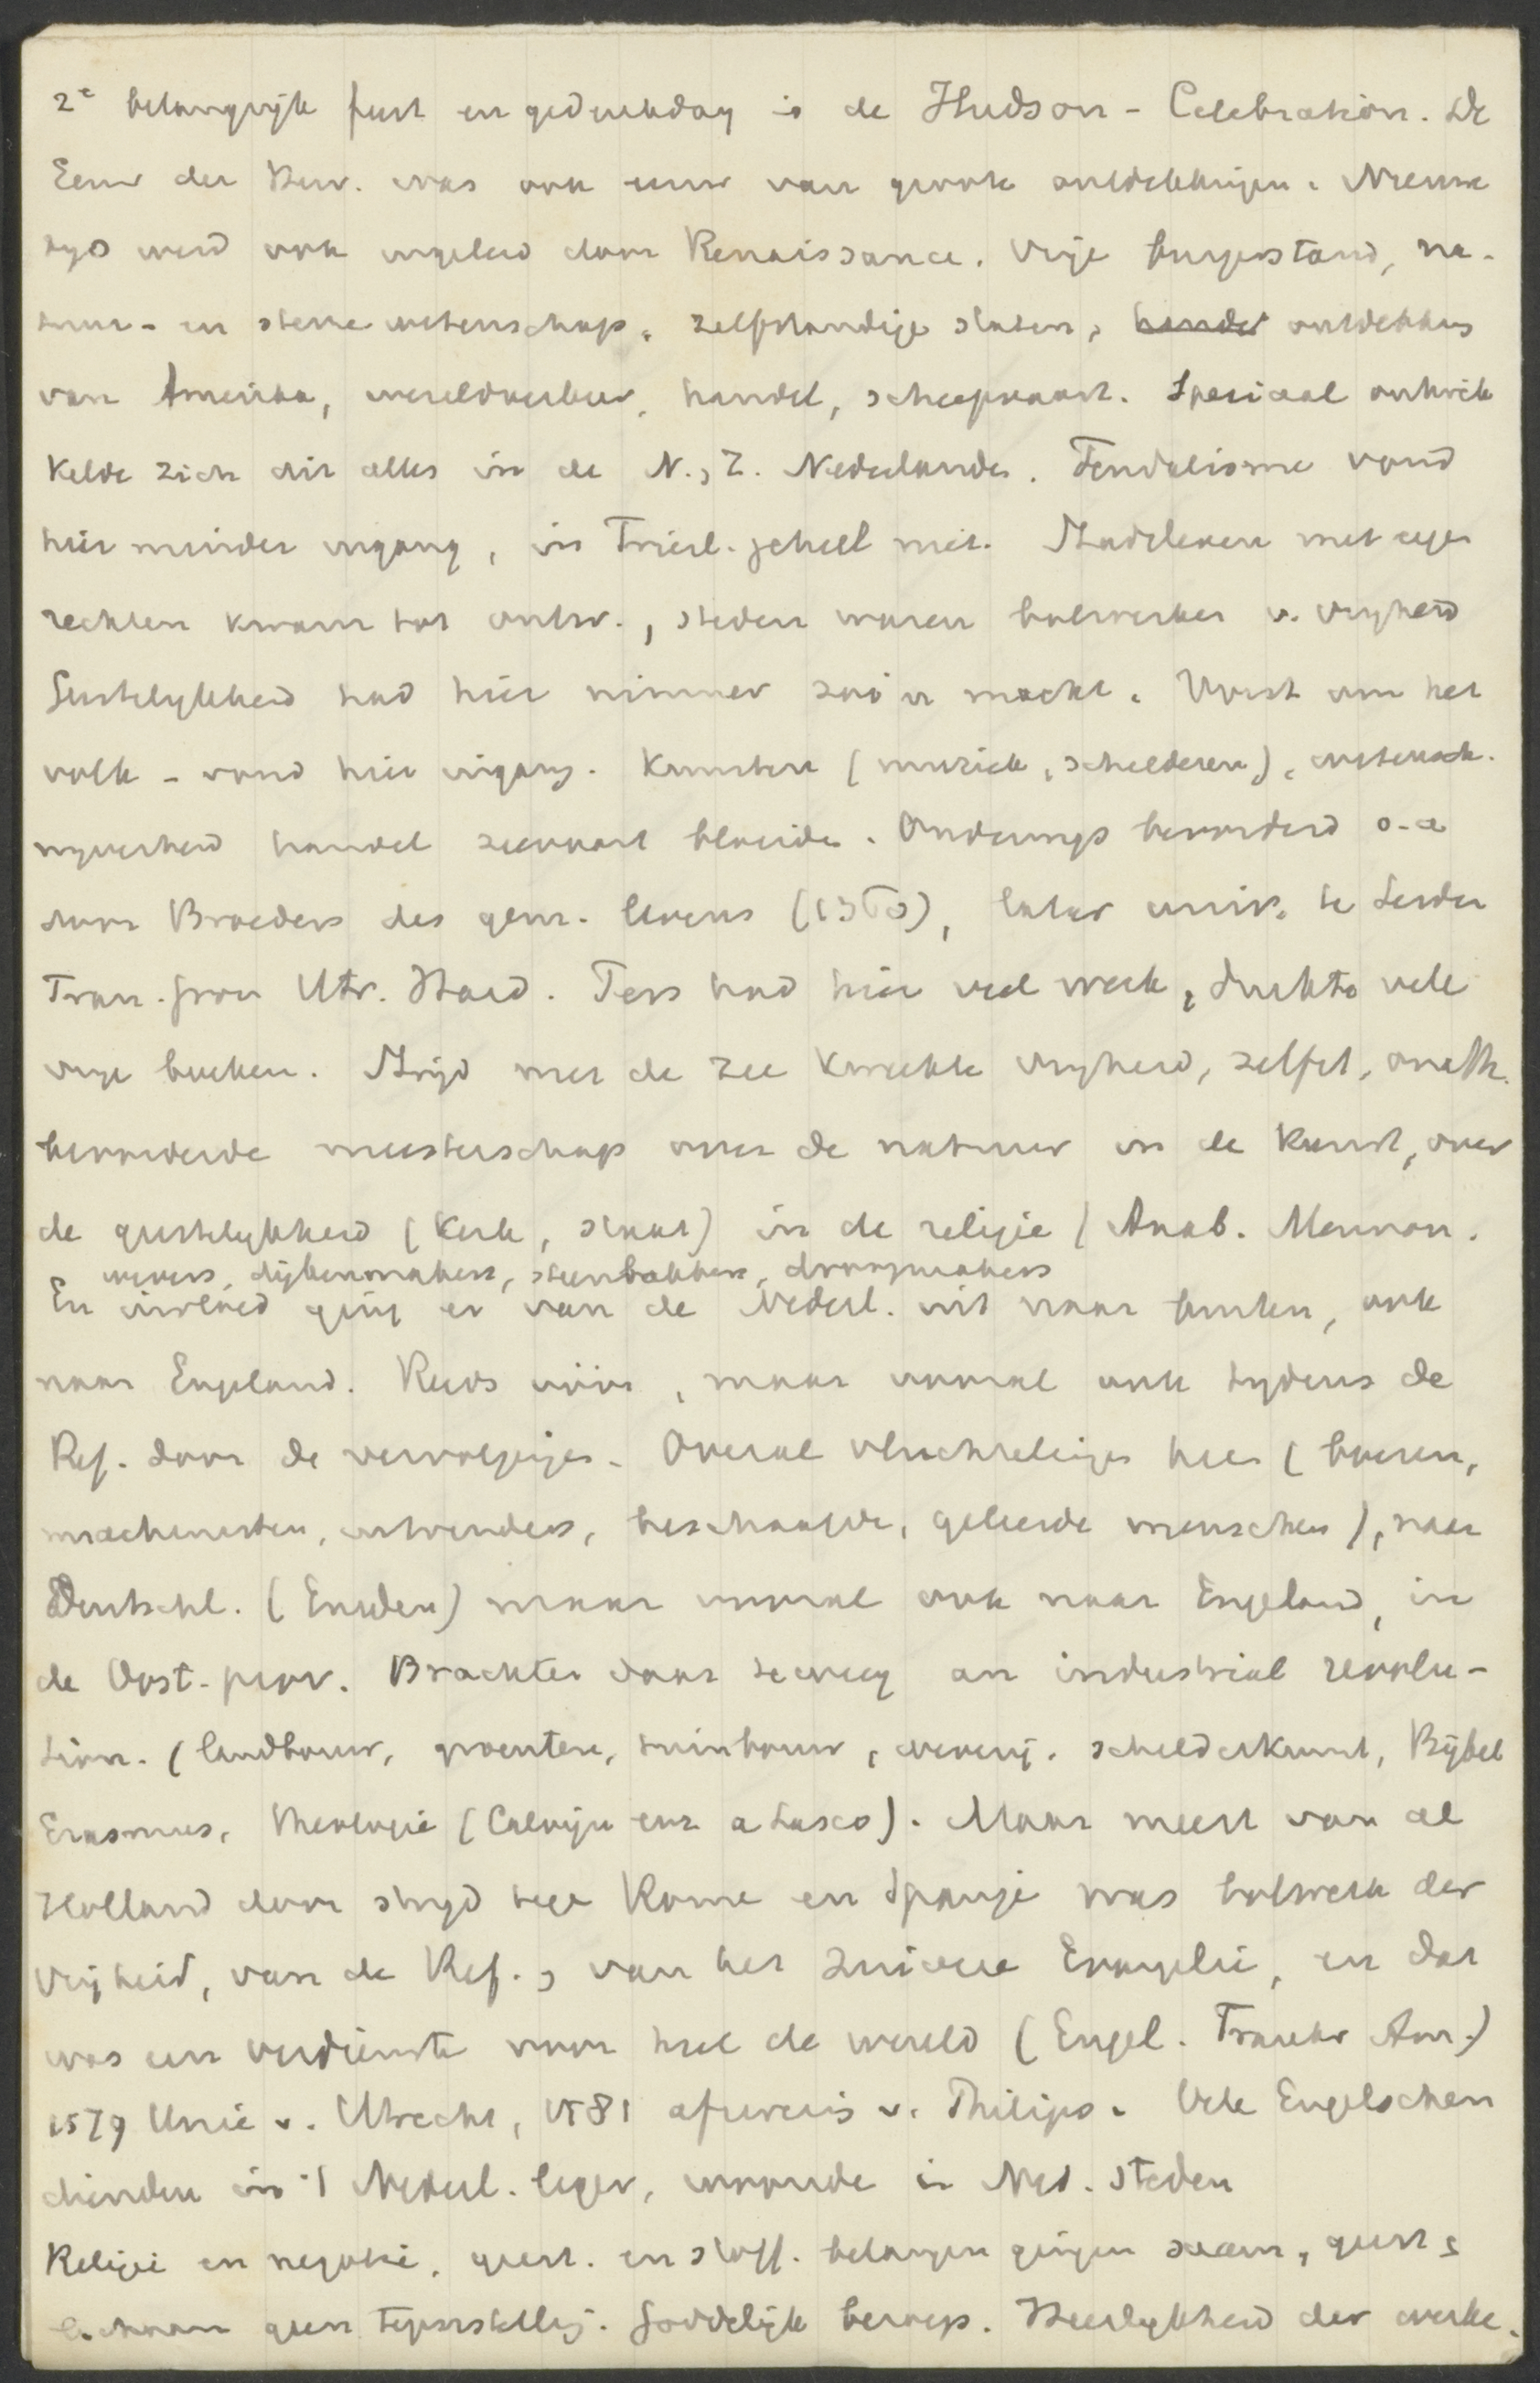 2e belangrijk feest en gedenkdag is de Hudson - Celebration. De
Eeuw der Herv. was ook eeuw van groote ontdekkingen. Nieuwe
tyd werd ook ingeleid door Renaissance. Vrije burgerstand, na-
tuur- en sterrewetenschap, zelfstandige staten, handel ontdekking
van Amerika, wereldverkeer, handel, scheepvaart. Speciaal ontwik
kelde zich dit alles in de N., Z. Nederlanden. Feudalisme vond
hier minder ingang, in Friesl. geheel niet. Stadsleven met eigen
rechten kwam tot ontw., steden waren bolwerken v. vryheid
Geestelykheid had hier nimmer zóó'n macht. Vorst om het
volk - vond hier ingang. Kunsten (muziek, schilderen), wetensch.
nyverheid handel zeevaart bloeide. Onderwys bevorderd o.a
door Broeders des gem. levens (1360), later univ. te Leiden
Fran. Gron Utr. Hard. Pers had hier veel werk, drukte vele
vrye boeken. Strijd met de zee kweekte vryheid, zelfst, onafh.
bevorderde meesterschap over de natuur in de kunst, over
de geestelykheid (kerk, staat) in de religie (Anab. Mennon.
wevers, dijkenmakers, steenbakkers, droogmakers
En invloed ging er van de Nederl. uit naar buiten, ook
naar Engeland. Reeds vóór, maar vooral ook tydens de
Ref. door de vervolgingen. Overal vluchtelingen heen (boeren,
machinisten, uitvinders, beschaafde, geleerde menschen), naar
Deutschl. (Emden) maar vooral ook naar Engeland, in
de Oost-prov. Brachten daar teweeg an industrial revolu-
tion. (landbouw, groenten, tuinbouw, weverij. schilderkunst, Bijbel
Erasmus, theologie (Calvijn enz a Lasco). Maar meest van al
Holland door stryd tege Rome en Spanje was bolwerk der
Vrijheid, van de Ref., van het zuivere Evangelie, en dat
was een verdienste voor heel de wereld (Engel. Frankr Am.)
1579 Unie v. Utrecht, 1581 afzwering v. Philips. Vele Engelschen
dienden in 't Nederl. leger, woonde in Ned. steden
Religie en negotie, geest. en stoff. belangen gingen saam, geest
lichaam geen tegenstelling. Goddelijk beroep. Heerlykheid der werke.